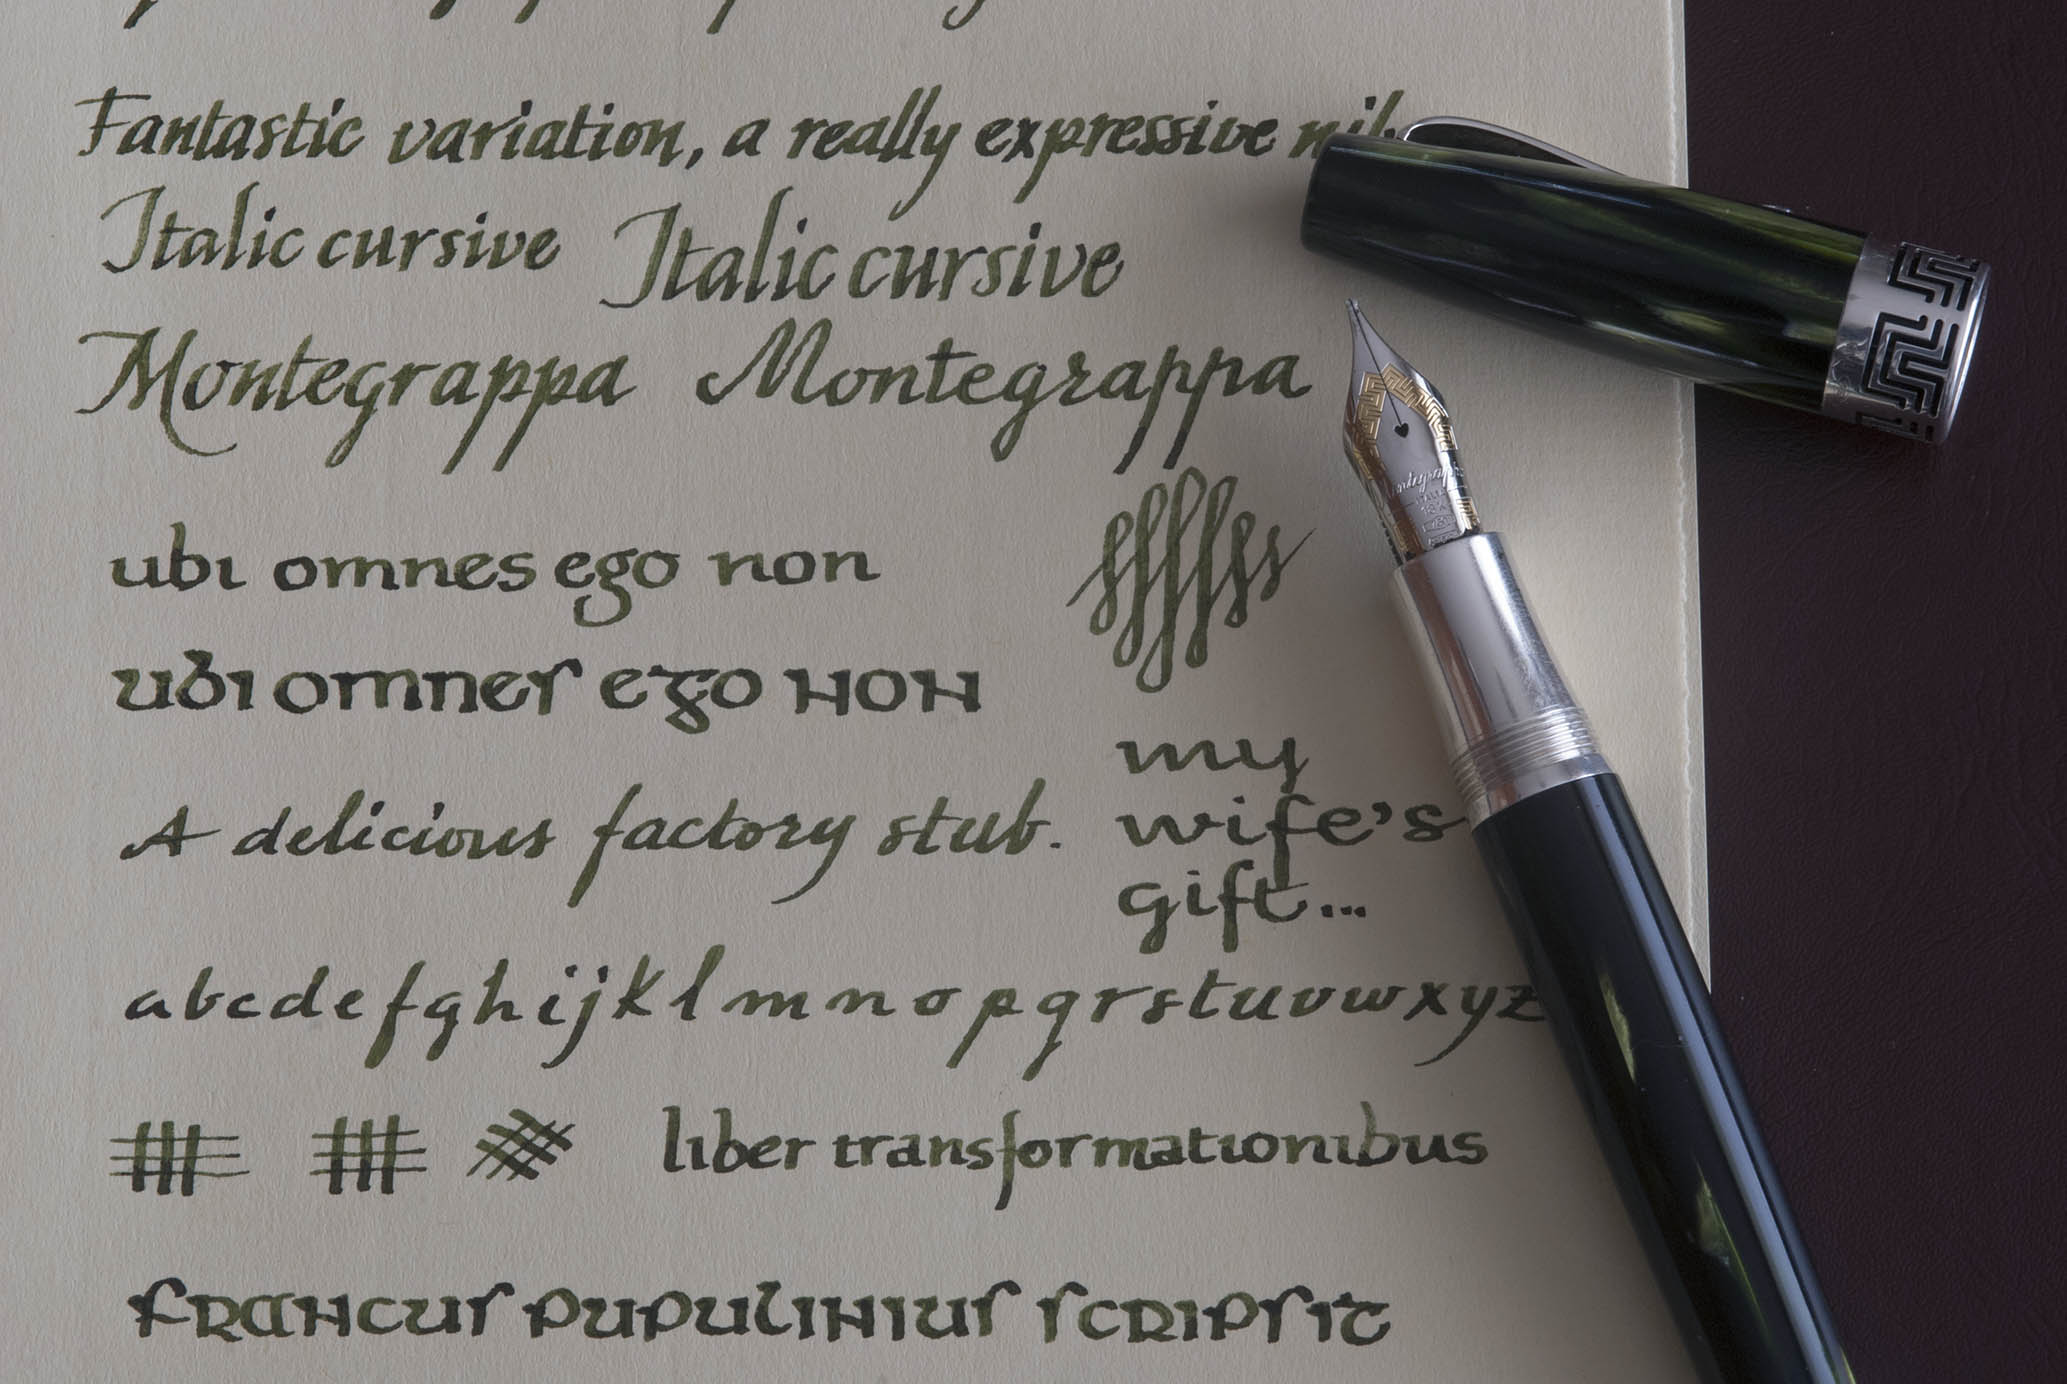 Fantastic variation, a really expressive nib
Italic cursive Italic cursive
Montegrappa Montegrappa
ubi omnes ego non
ubi omnes ego non
my
wife's
gift...
A delicious factory stub.
abcdefghijklmnopqrstuvwxyz
liber transformationibus
Francus pupulinius scripsit
Montegrappa